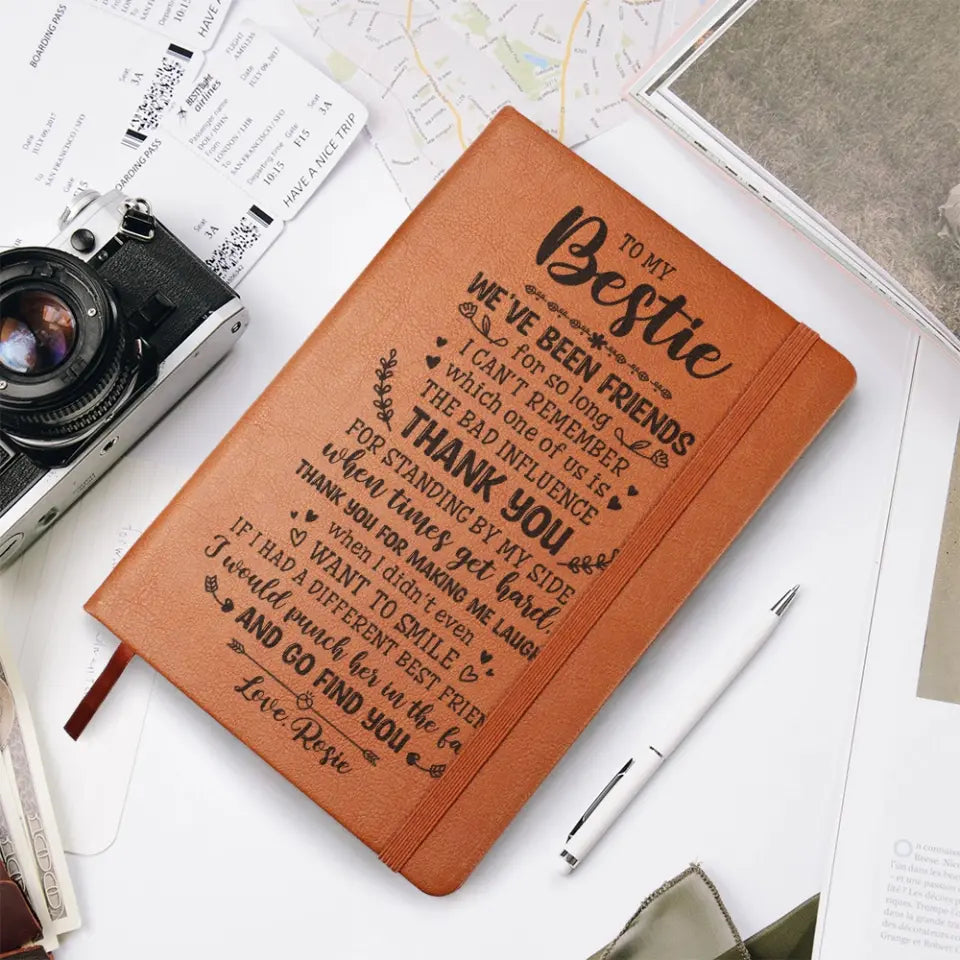 TO MY
Bestie
WE'VE BEEN FRIENDS
for so long
I CAN'T REMEMBER
which one of us is
THE BAD INFLUENCE
THANK YOU
FOR STANDING BY MY SIDE
when times get hard,
THANK YOU FOR MAKING ME LAUGH
when I didn't even
WANT TO SMILE
IF I HAD A DIFFERENT BEST FRIEN
I would punch her in the fa
AND GO FIND YOU
Love, Rosie
BOARDING PASS
Seat
3A
Departing time
10:15
HAVE A NICE
JULY 09, 2017
To
SAN FRANCISCO / SFO
Gate
BOARDING PASS
Seat
3A
BESTflight
airlines
FLIGHT
AMS1235
Date
JULY 09, 2017
Passenger name
DOE / JOHN
From
LONDON / LHR
To
SAN FRANCISCO / SFO
Departing time
10:15
Gate
F15
Seat
3A
HAVE A NICE TRIP